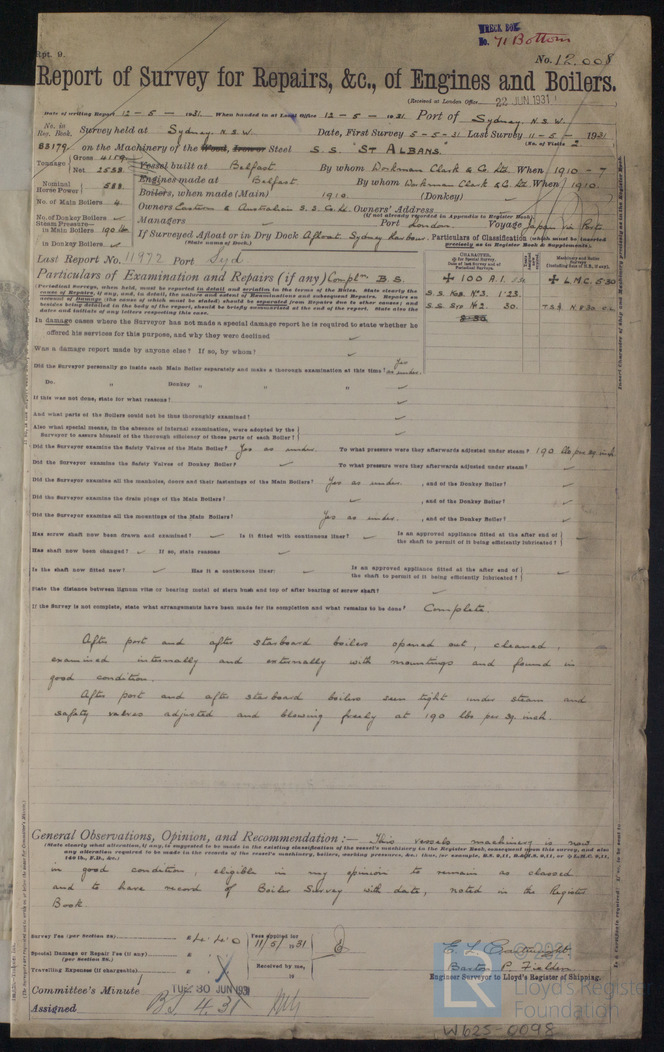 WRECK BOX
No. 71 Bottom
Rpt. 9.
No. 12,008
Report of Survey for Repairs, &c., of Engines and Boilers.
(Received at London Office 22 JUN 1931)
Date of writing Report 12-5-1931. When handed in at Local Office 12-5-1931. Port of Sydney, N.S.W.
No. in Reg. Book. Survey held at Sydney, N.S.W. Date, First Survey 5-5-31 Last Survey 11-5-1931
(No. of Visits 2)
88179 on the Machinery of the Wood, Iron or Steel S.S. "ST ALBANS."
Tonnage Gross 4119 Net 2538 Vessel built at Belfast. By whom Workman Clark & Co. Ltd. When 1910-7
Nominal Horse Power 588 Engines made at Belfast. By whom Workman Clark & Co. Ltd. When 1910.
No. of Main Boilers 4. Boilers, when made (Main) 1910 (Donkey) ✓
No. of Donkey Boilers ✓ Owners Eastern & Australian S.S. Co. Ld. Owners' Address
(if not already recorded in Appendix to Register Book)
Steam Pressure in Main Boilers 190 lbs. Managers ✓ Port London. Voyage Japan via Ports
in Donkey Boilers ✓ If Surveyed Afloat or in Dry Dock Afloat, Sydney Harbour.
(State name of Dock.)
Particulars of Classification (which must be inserted precisely as in Register Book & Supplements).
Last Report No. 11972 Port Syd
Particulars of Examination and Repairs (if any) Comptn B.S.
+ 100 A.1.
+ L.M.C. 5.30
S.S. No. 3. 1.23
S.S. No. 2. 30.
(Periodical Surveys, when held, must be reported in detail and seriatim in the terms of the Rules. State clearly the cause of Repairs, if any, and, in detail, the nature and extent of Examinations and subsequent Repairs. Repairs on account of Damage (the cause of which must be stated) should be separated from Repairs due to other causes; and besides being detailed in the body of the report, should be briefly summarised at the end of the report. State also the dates and initials of any letters respecting this case.)
In damage cases where the Surveyor has not made a special damage report he is required to state whether he
offered his services for this purpose, and why they were declined ✓
Was a damage report made by anyone else? If so, by whom? ✓
Did the Surveyor personally go inside each Main Boiler separately and make a thorough examination at this time? Yes as under.
Do. " Donkey " " " ✓
If this was not done, state for what reasons? ✓
And what parts of the Boilers could not be thus thoroughly examined? ✓
Also what special means, in the absence of internal examination, were adopted by the
Surveyor to assure himself of the thorough efficiency of those parts of each Boiler? ✓
Did the Surveyor examine the Safety Valves of the Main Boiler? Yes as under. To what pressure were they afterwards adjusted under steam? 190 lbs per sq. inch
Did the Surveyor examine the Safety Valves of Donkey Boiler? ✓ To what pressure were they afterwards adjusted under steam? ✓
Did the Surveyor examine all the manholes, doors and their fastenings of the Main Boilers? Yes as under. , and of the Donkey Boiler? ✓
Did the Surveyor examine the drain plugs of the Main Boilers? ✓ , and of the Donkey Boiler? ✓
Did the Surveyor examine all the mountings of the Main Boilers? Yes as under. , and of the Donkey Boiler? ✓
Has screw shaft now been drawn and examined? ✓ Is it fitted with continuous liner? ✓ Is an approved appliance fitted at the after end of the shaft to permit of it being efficiently lubricated? ✓
Has shaft now been changed? ✓ If so, state reasons ✓
Is the shaft now fitted new? ✓ Has it a continuous liner? ✓ Is an approved appliance fitted at the after end of the shaft to permit of it being efficiently lubricated? ✓
State the distance between lignum vitæ or bearing metal of stern bush and top of after bearing of screw shaft? ✓
If the Survey is not complete, state what arrangements have been made for its completion and what remains to be done? Complete.
After port and after starboard boilers opened out, cleaned,
examined internally and externally with mountings and found in
good condition.
After port and after starboard boilers seen tight under steam and
safety valves adjusted and blowing freely at 190 lbs per sq. inch.
General Observations, Opinion, and Recommendation:— This vessels machinery is now
in good condition, eligible in my opinion to remain as classed
and to have record of Boiler Survey with date, noted in the Register
Book.
Survey Fee (per Section 29) £4.4.0
Fees applied for 11/5/1931
Special Damage or Repair Fee (if any) (per Section 29.) £
Travelling Expenses (if chargeable) £
Received by me, 19
E. L. Cartwright
Barton P. Fielden
Engineer Surveyor to Lloyd's Register of Shipping.
Committee's Minute TUE 30 JUN 1931
Assigned B.S. 4.31
© 2021
LR
Lloyd's Register
Foundation
W625-0098